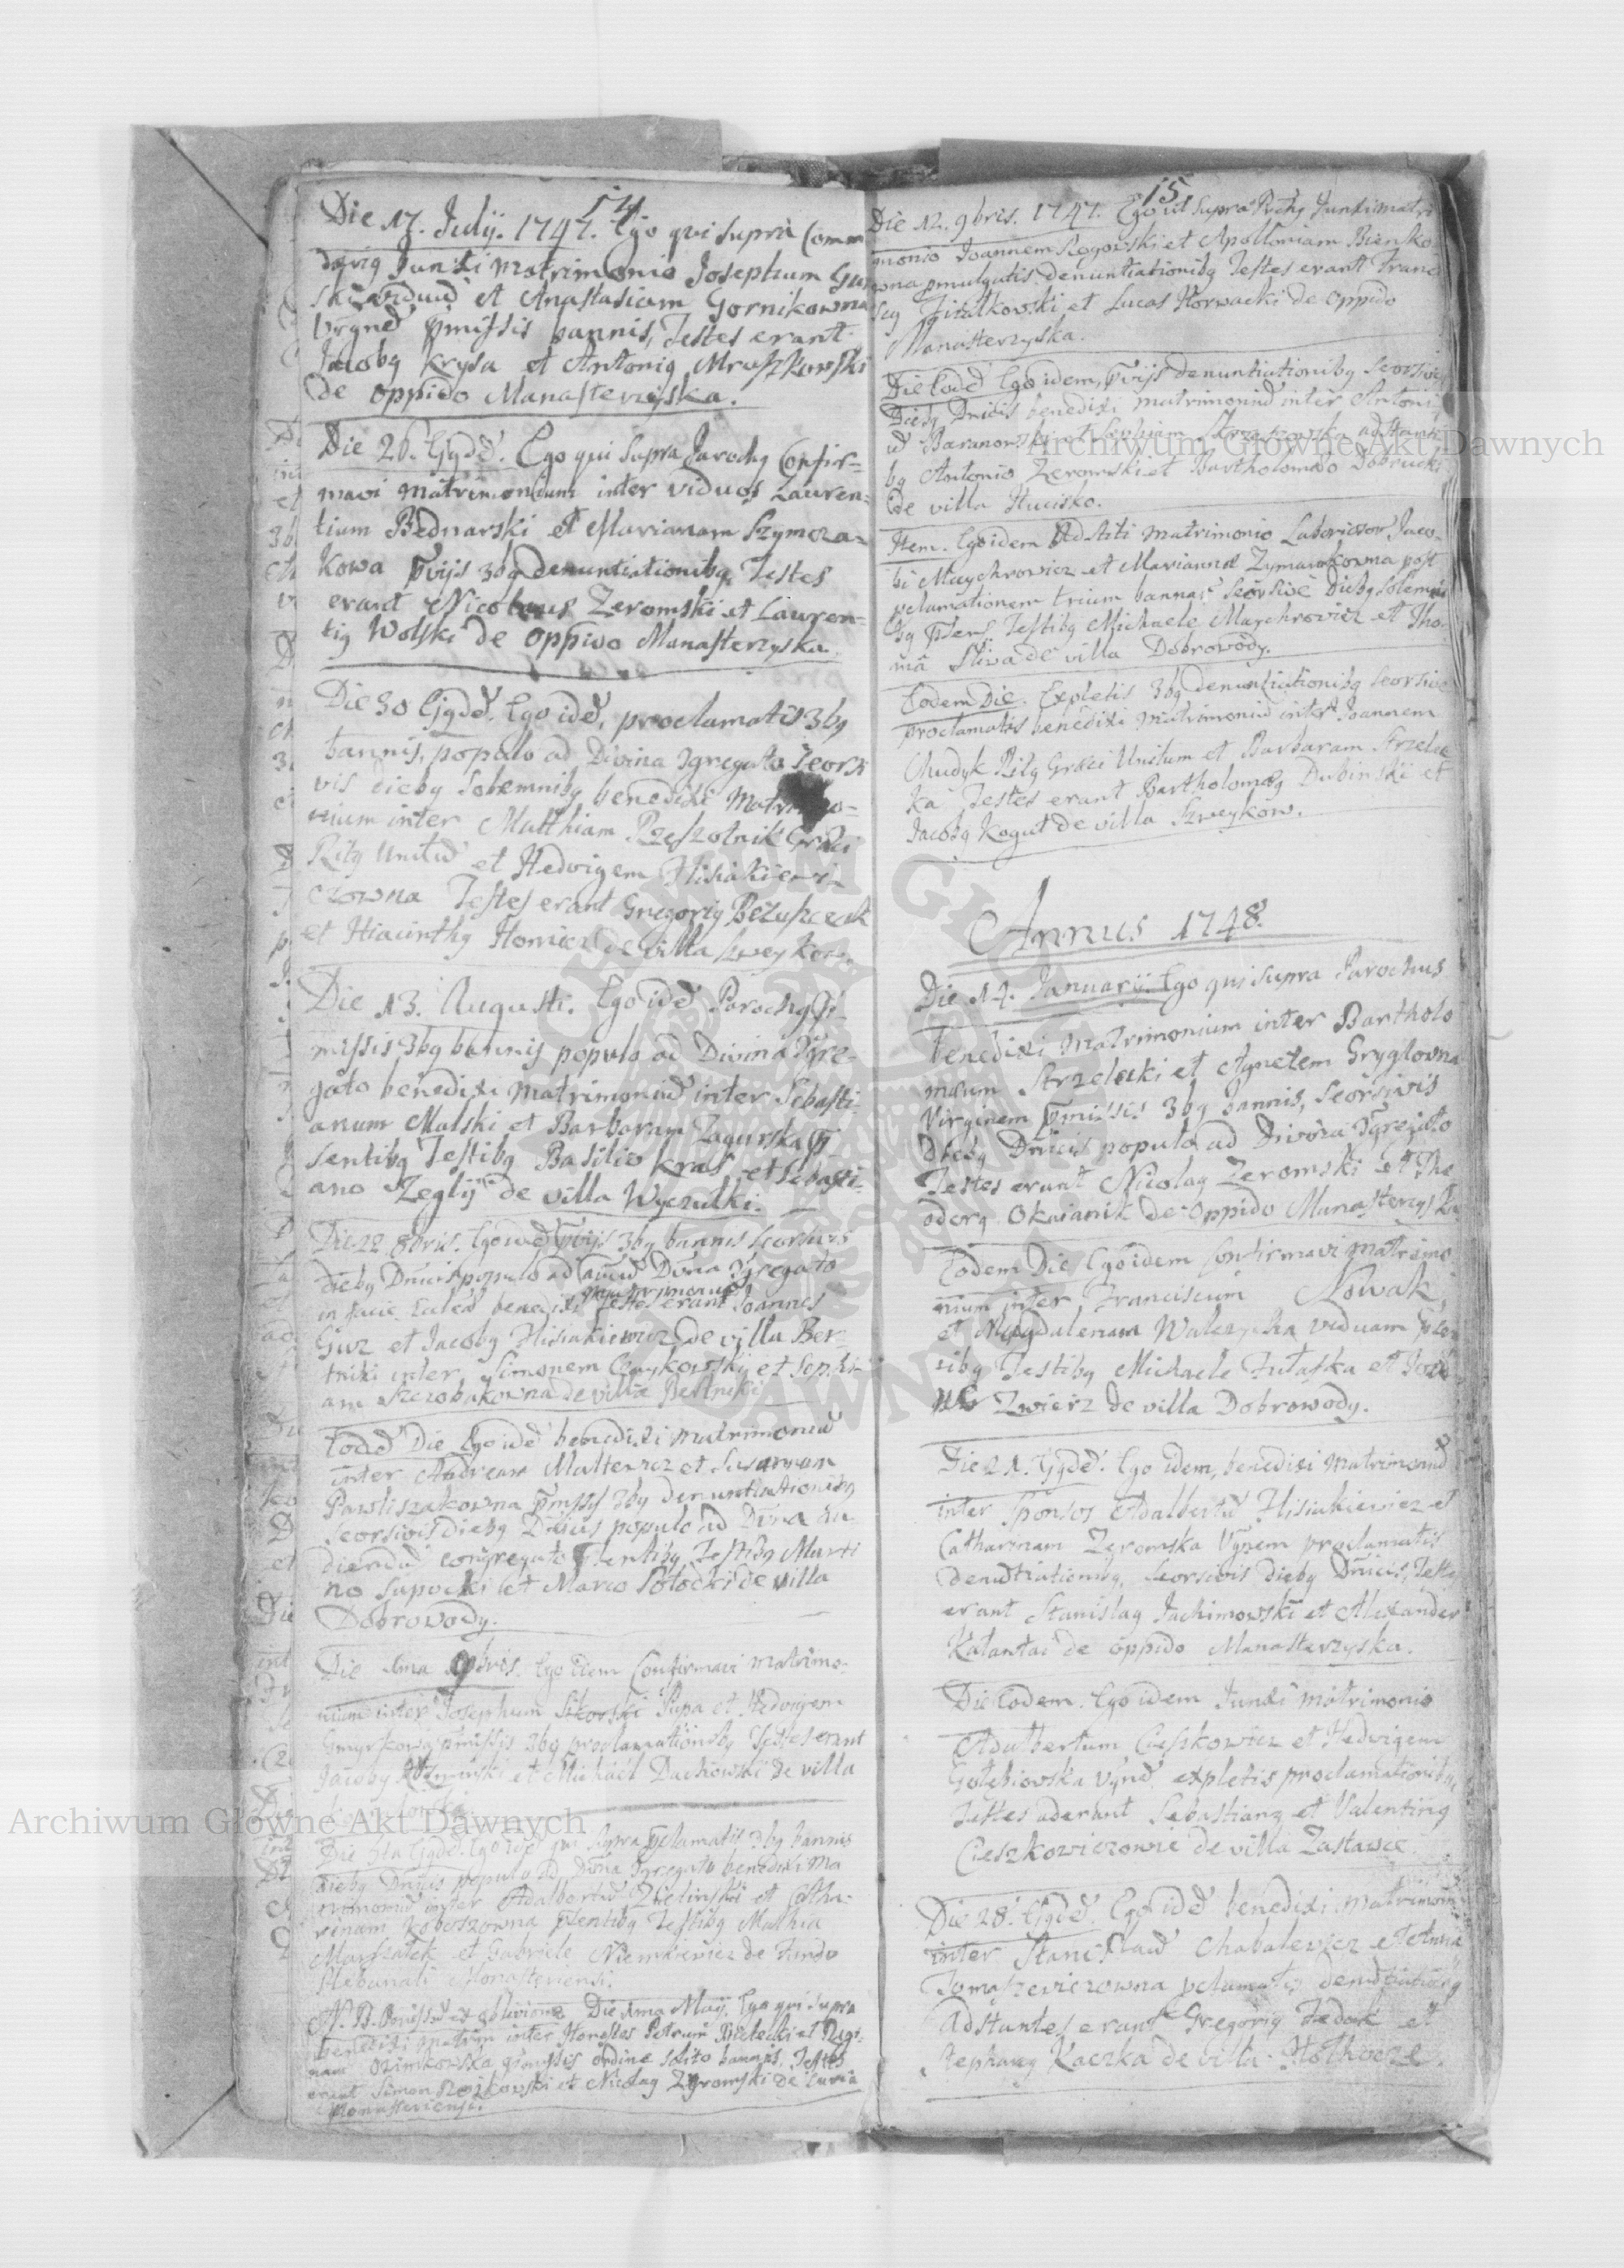 14
Die 17. Julij. 1747. Ego qui supra Comm
darig Junxi matrimonio Josephum
et Anastasiam Gornikowna
pmissis bannis, Testes erant
Jacobg Krysa et Antonig Mroszkowski
de oppido Manasterzyska.
Die 26. Ejgdē. Ego qui supra Parochg Confir=
mavi matrimonium inter viduos Lauren=
tium Bednarski et Mariannam Szymcza=
kowa pvijs 3bg denuntiationibg, Testes
erant Nicolaus Zeromski et Lauren=
tig Wolski de oppido Manasterzyska.
Die 30 Ejgdē. Ego idē, proclamatis 3bg
bannis, populo ad Divina Ɔgregato seorsi
vis diebg solemnibg benedixi Matrimo-
nium inter Matthiam Rzeszotnik Græci
Ritg Unitū et Hedvigem Hisiakiewi-
czowna Testes erant Gregorig
et Hiacinthg de villa
Die 13. Augusti. Ego idē Parochg p-
missis 3bg bannis populo ad Divina Ɔgre-
gato benedixi matrimoniū inter Sebasti-
anum Malski et Barbaram Zagurska p
sentibg Testibg Basilio Kras, et Sebasti-
ano Zeglij de villa Wyczułki.
Die 22. 8bris. Ego idē pvijs 3bg bannis seorsivis
diebg Dnicis populo ad Divina Ɔgregato
matrimoniū
in facie Ecclæ benedixi Testes erant Joannes
Guz et Jacobg Hisiakiewicz de villa Ber-
tniki inter Simonem Czaykowski et Sophi-
am de villa
Eodē Die Ego idē benedixi matrimoniū
inter Andream et Susannam
Pawliszakowna pmissis 3bg denuntiationibg
seorsivis diebg Dnicis populo ad Divina au-
diendū congregato psentibg Testibg Marti
no et Marco Potocki de villa
Dobrowody.
Die 1ma 9bris. Ego idem Confirmavi matrimo-
nium inter Josephum Sikorski et Hedvigem
pmissis 3bg proclamationibg Testes erant
Jacobg et Michael Dachowski de villa
Die Ejgdē. Ego idē qui supra pclamatis 3bg bannis
diebg Dnicis populo ad Divina Ɔgregato benedixi Ma
trimoniū inter Adalbertū Zielinski et Catha-
rinam Kokoszowna psentibg Testibg Mathia
Marszałek et Gabriele Niemkiewicz de Fundo
Plebanali Monasteriensi.
N. B. ex oblivione Die 1ma Maij. Ego qui supra
benedixi matrim inter Honestos Petrum et Regi-
nam pmissis ordine solito bannis, Testes
erant Simon et Nicolag Zeromski de Curia
Monasteriensi.
15
Die 12. 9bris. 1747. Ego ut supra Junxi matri
monio Joannem Rogowski et Apolloniam Bienko
wna pmulgatis denuntiationibg Testes erant Franci
scg et Lucas Horwacki de oppido
Manasterzyska.
Die Eodē Ego idem, pvijs denuntiationibg seorsivis
Diebg Dnicis benedixi matrimoniū inter Antoni
ū Baranowski et Sophiam adstanti
bg Antonio Zeromski et Bartholomæo Dobrucki
de villa Hucisko.
Item. Ego idem Adstiti matrimonio Laboriosor Jaco-
bi Maychrowicz et Mariannæ post
pclamationem trium bannor seorsive Diebg solemni
bg psen. Testibg Michaele Maychrowicz et Tho-
ma Sliva de villa Dobrowody.
Eodem Die. Expletis 3bg denuntiationibg seorsive
proclamatis benedixi matrimoniū inter Joannem
Chudyk Ritg Græci Unitum et Barbaram Strzelec
ka Testes erant Bartholomæg Dubinski et
Jacobg Kogut de villa Szweyków.
Annus 1748.
Die 14. Januarij. Ego qui supra Parochus
benedixi matrimonium inter Bartholo
mæum Strzelecki et Agnetem Gryglowna
Virginem pmissis 3bg bannis, seorsivis
Diebg Dnicis populo ad Divina Ɔgregato
Testes erant Nicolag Zeromski et The
odorg Okaianik de oppido Manasterzyska
Eodem Die Ego idem Confirmavi matrimo
nium inter Franciscum Nowak,
et Magdalenam Walczycha viduam psen
tibg Testibg Michaele et
Zwierz de villa Dobrowody.
Die 21. Ejgdē. Ego idem, benedixi matrimoniū
inter Sponsos Adalbertū Hisiakiewicz et
Catharinam Zeromska Vgnem proclamatis
denuntiationibg, seorsivis diebg Dnicis, Testes
erant Stanislag Jachimowski et Alexander
Kałantai de oppido Manasterzyska.
Die Eodem. Ego idem Junxi matrimonio
Adalbertum Cieszkowicz et Hedvigem
Gołębiowska Vgnē, expletis proclamationibg,
Testes aderant Sebastiang et Valenting
Cieszkowiczowie de villa Zastawce.
Die 28. Ejgdē. Ego idē benedixi matrimoniū
inter Stanisław Chabalewicz et Annā
Tomaszewiczowna pclamatis denuntiationibg
Adstantes erant Gregorig Fedak et
Stephang Kaczka de villa Hołhocze.
Archiwum Główne Akt Dawnych
Archiwum Główne Akt Dawnych
ARCHIWUM GŁÓWNE AKT DAWNYCH